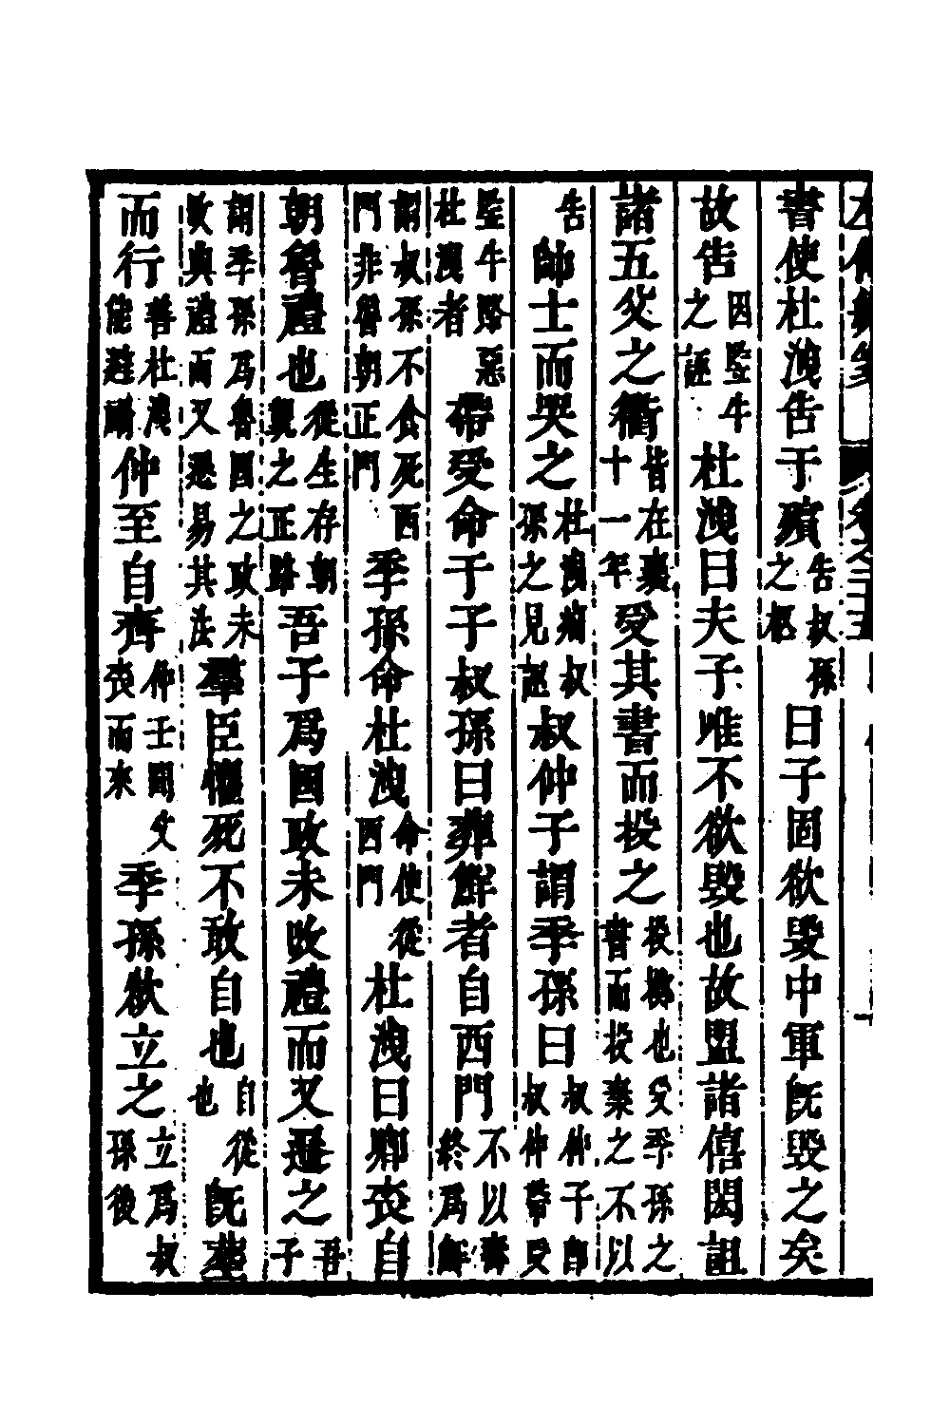 書使杜洩告于殯告叔孫之柩曰子固欲毀中軍旣毀之矣
故告因豎牛之誣杜洩曰夫子唯不欲毀也故盟諸僖閎詛
諸五父之衢皆在襄十一年受其書而投之投擲也受季孫之書而投棄之不以
告帥士而哭之杜洩痛叔孫之見誣叔仲子謂季孫曰叔仲子即叔仲帶受
豎牛賂惡杜洩者帶受命于子叔孫曰葬鮮者自西門不以壽終爲鮮
謂叔孫不食死西門非魯朝正門季孫命杜洩命使從西門杜洩曰卿喪自
朝魯禮也從生存朝覲之正路吾子爲國政未改禮而又遷之吾子
謂季孫爲魯國之政未改典禮而又遷易其法羣臣懼死不敢自也自從也旣葬
而行善杜洩能避禍仲至自齊仲壬聞父喪而來季孫欲立之立爲叔孫後